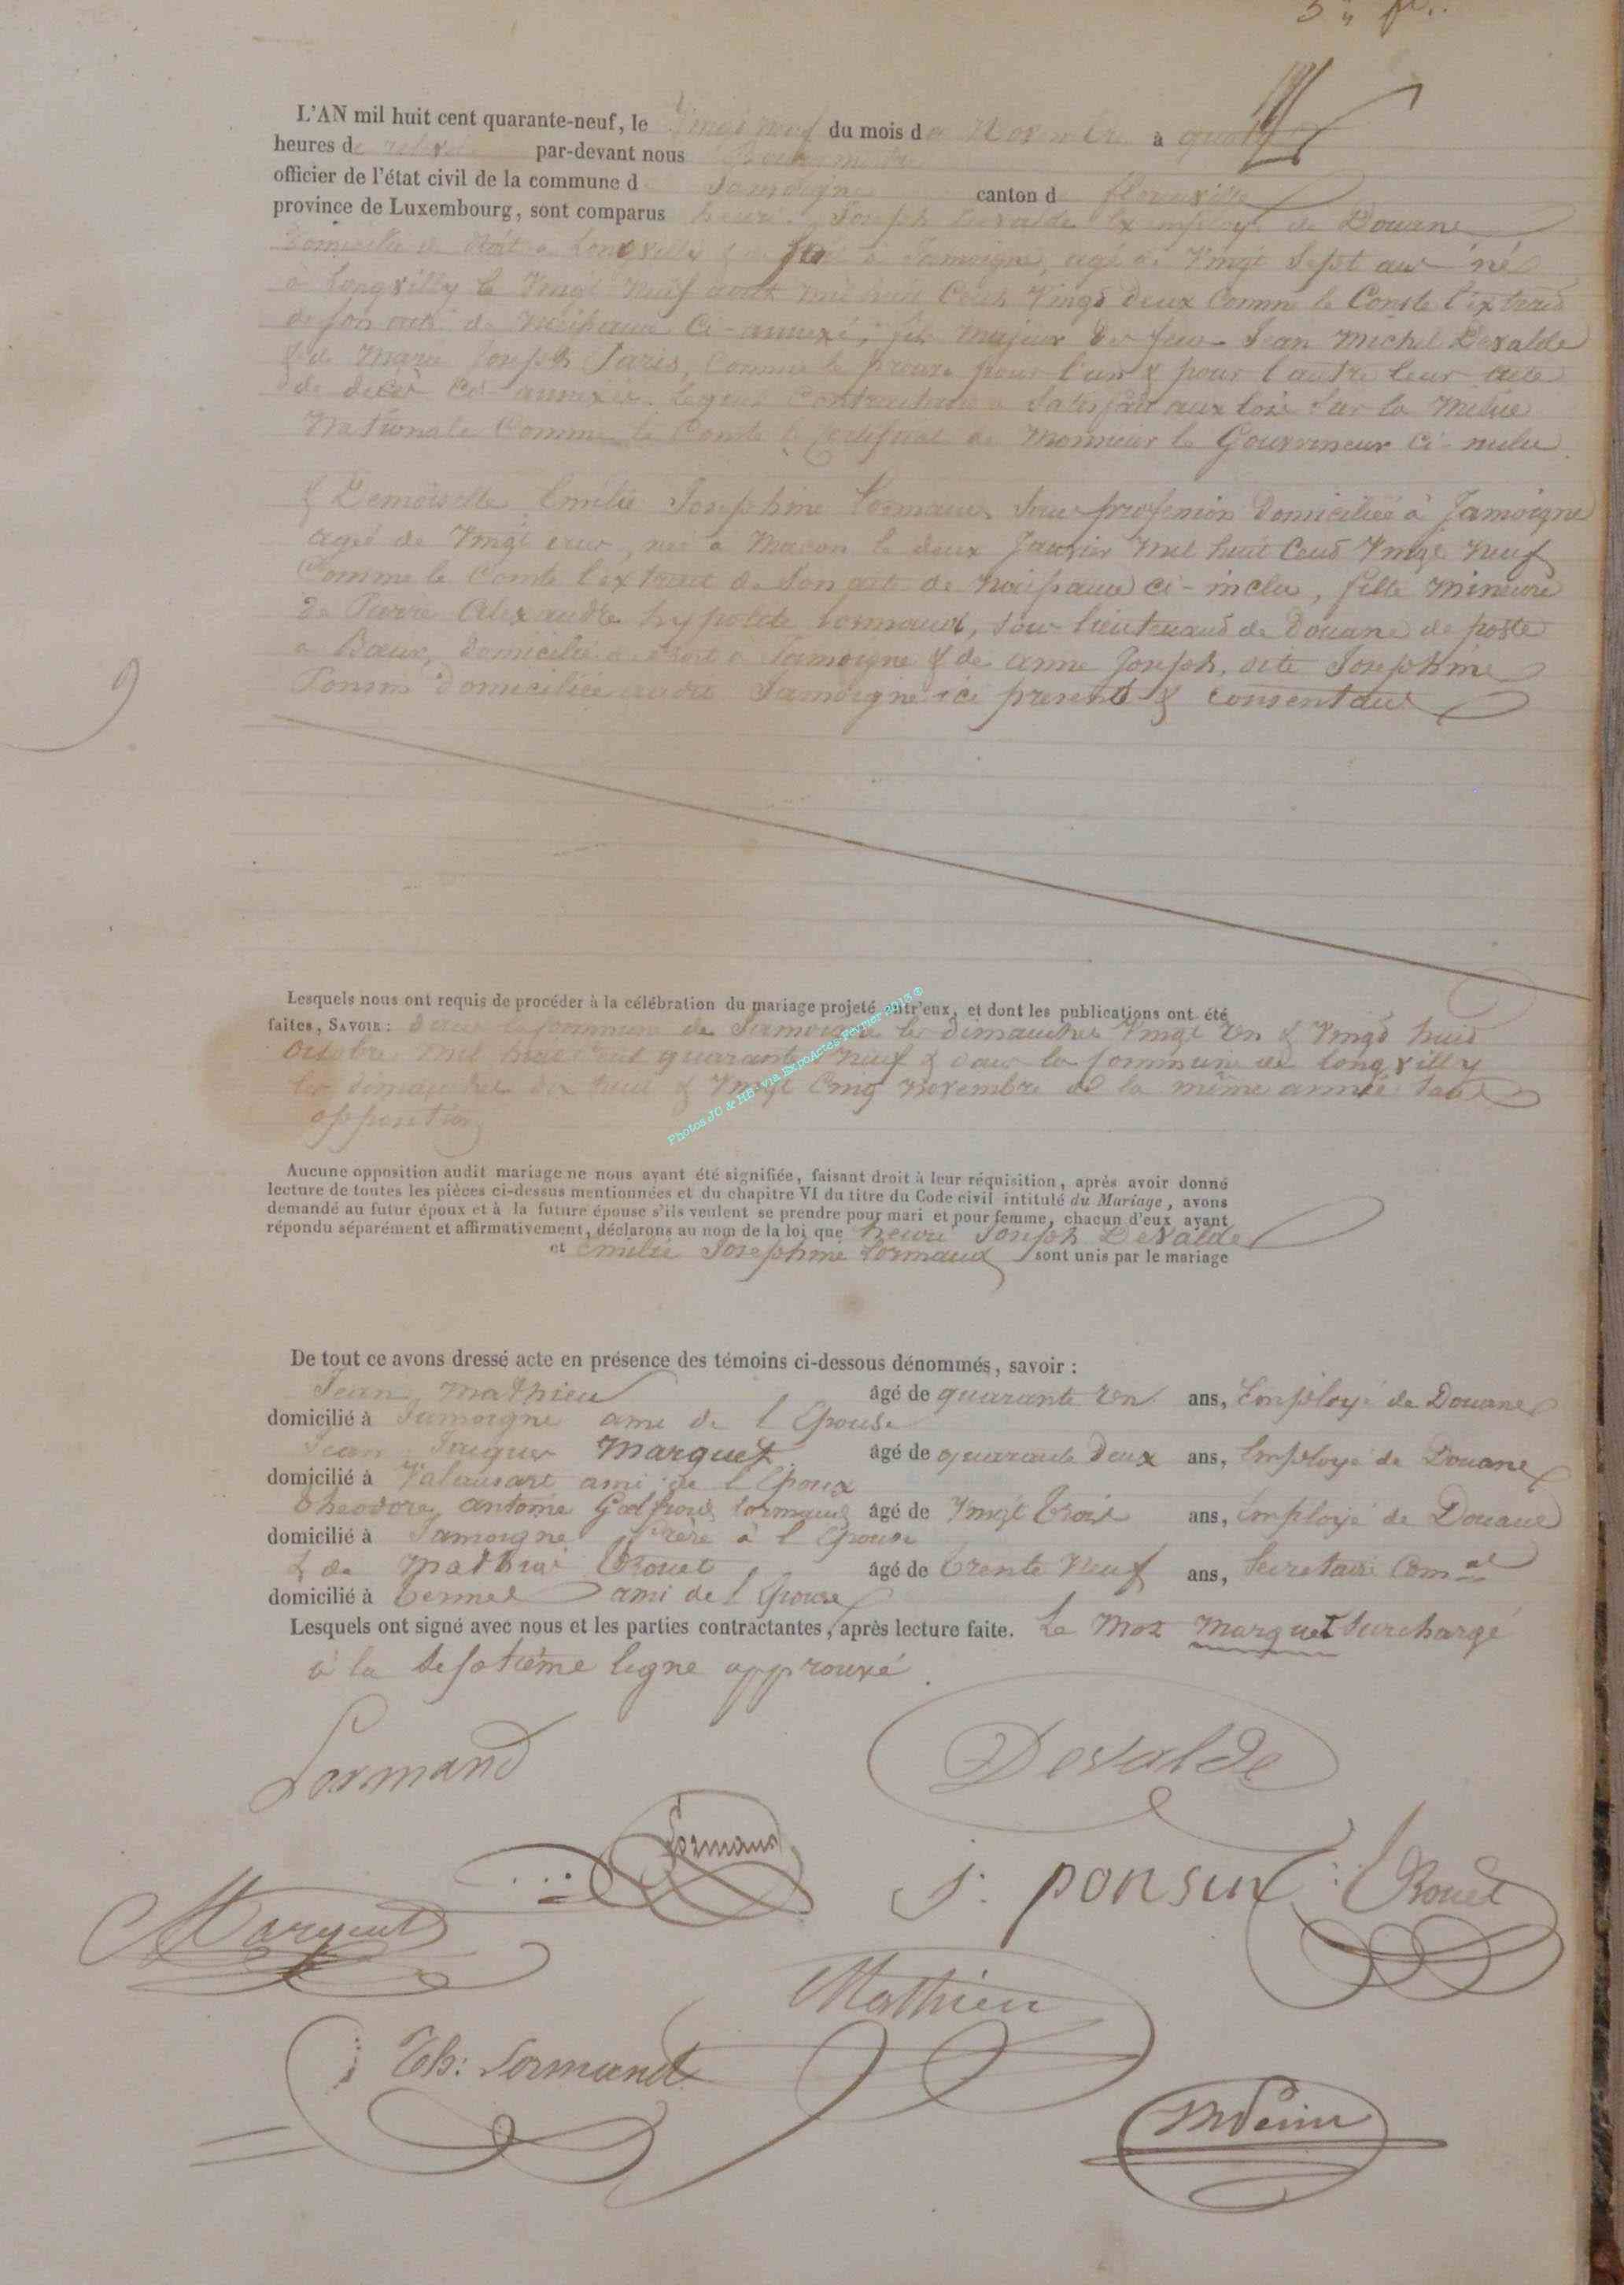 L'AN mil huit cent quarante-neuf, le Vingt neuf du mois de Novembre à quatre
heures de relevée par-devant nous Bourgmestre
officier de l'état civil de la commune de Jamoigne canton de florenville
province de Luxembourg, sont comparus henri Joseph Devalde Ex employé de Douane
Domicilié de droit à Longvilly & de fait à Jamoigne, agé de Vingt Sept ans né
à Longvilly le Vingt Neuf août mil huit Cent Vingt deux Comme le Conste l'extrait
de son acte de Naissance Ci-annexé, fils Majeur de feu Jean Michel Devalde
& de Marie Joseph Paris, Comme le prouve pour l'un & pour l'autre leur acte
de décès Ci-annexés. Lequel Contractant a Satisfait aux lois Sur la Milice
Nationale Comme le Conste le Certificat de Monsieur le Gouverneur Ci-inclu
& Demoiselle Emélie Josephine Lormand Sans profession Domiciliée à Jamoigne
agée de Vingt ans, née à Macon le deux Janvier Mil huit Cent Vingt Neuf
Comme le Conste l'extrait de Son acte de Naissance ci-inclu, fille Mineure
de Pierre Alexandre hypolite Lormand, Sous-lieutenant de Douane de poste
à domicilié de droit à Jamoigne & de anne Joseph, dite Josephine
Ponsin domiciliée audit Jamoigne ici presents & consentans
Lesquels nous ont requis de procéder à la célébration du mariage projeté entr'eux, et dont les publications ont été
faites, SAVOIR: dans la Commune de Jamoigne les dimanches Vingt Un & Vingt huit
Octobre mil huit cent quarante Neuf & dans la Commune de Longvilly
les dimanches dix huit & Vingt Cinq Novembre de la même année Sans
opposition
Photos JC & HB - via ExpoActes Février 2013 ©
Aucune opposition audit mariage ne nous ayant été signifiée, faisant droit à leur réquisition, après avoir donné
lecture de toutes les pièces ci-dessus mentionnées et du chapitre VI du titre du Code civil intitulé du Mariage, avons
demandé au futur époux et à la future épouse s'ils veulent se prendre pour mari et pour femme, chacun d'eux ayant
répondu séparément et affirmativement, déclarons au nom de la loi que henri Joseph Devalde
et Emélie Josephine Lormand sont unis par le mariage
De tout ce avons dressé acte en présence des témoins ci-dessous dénommés, savoir:
Jean Mathieu âgé de quarante Un ans, Employé de Douane
domicilié à Jamoigne ami de l'Epouse
Jean Jacques Marquet âgé de quarante Deux ans, Employé de Douane
domicilié à Valansart ami de l'Epoux
Theodore antoine Lormand âgé de Vingt trois ans, Employé de Douane
domicilié à Jamoigne frère à l'Epouse
& de Mathias Rouet âgé de trente Neuf ans, Secretaire Com.al
domicilié à termes ami de l'Epouse
Lesquels ont signé avec nous et les parties contractantes, après lecture faite. Le Mot Marquet Surchargé
à la Septième ligne approuvé.
Lormand
Devalde
Lormand
J. ponsin
Rouet
Marquet
Mathieu
Th: Lormand